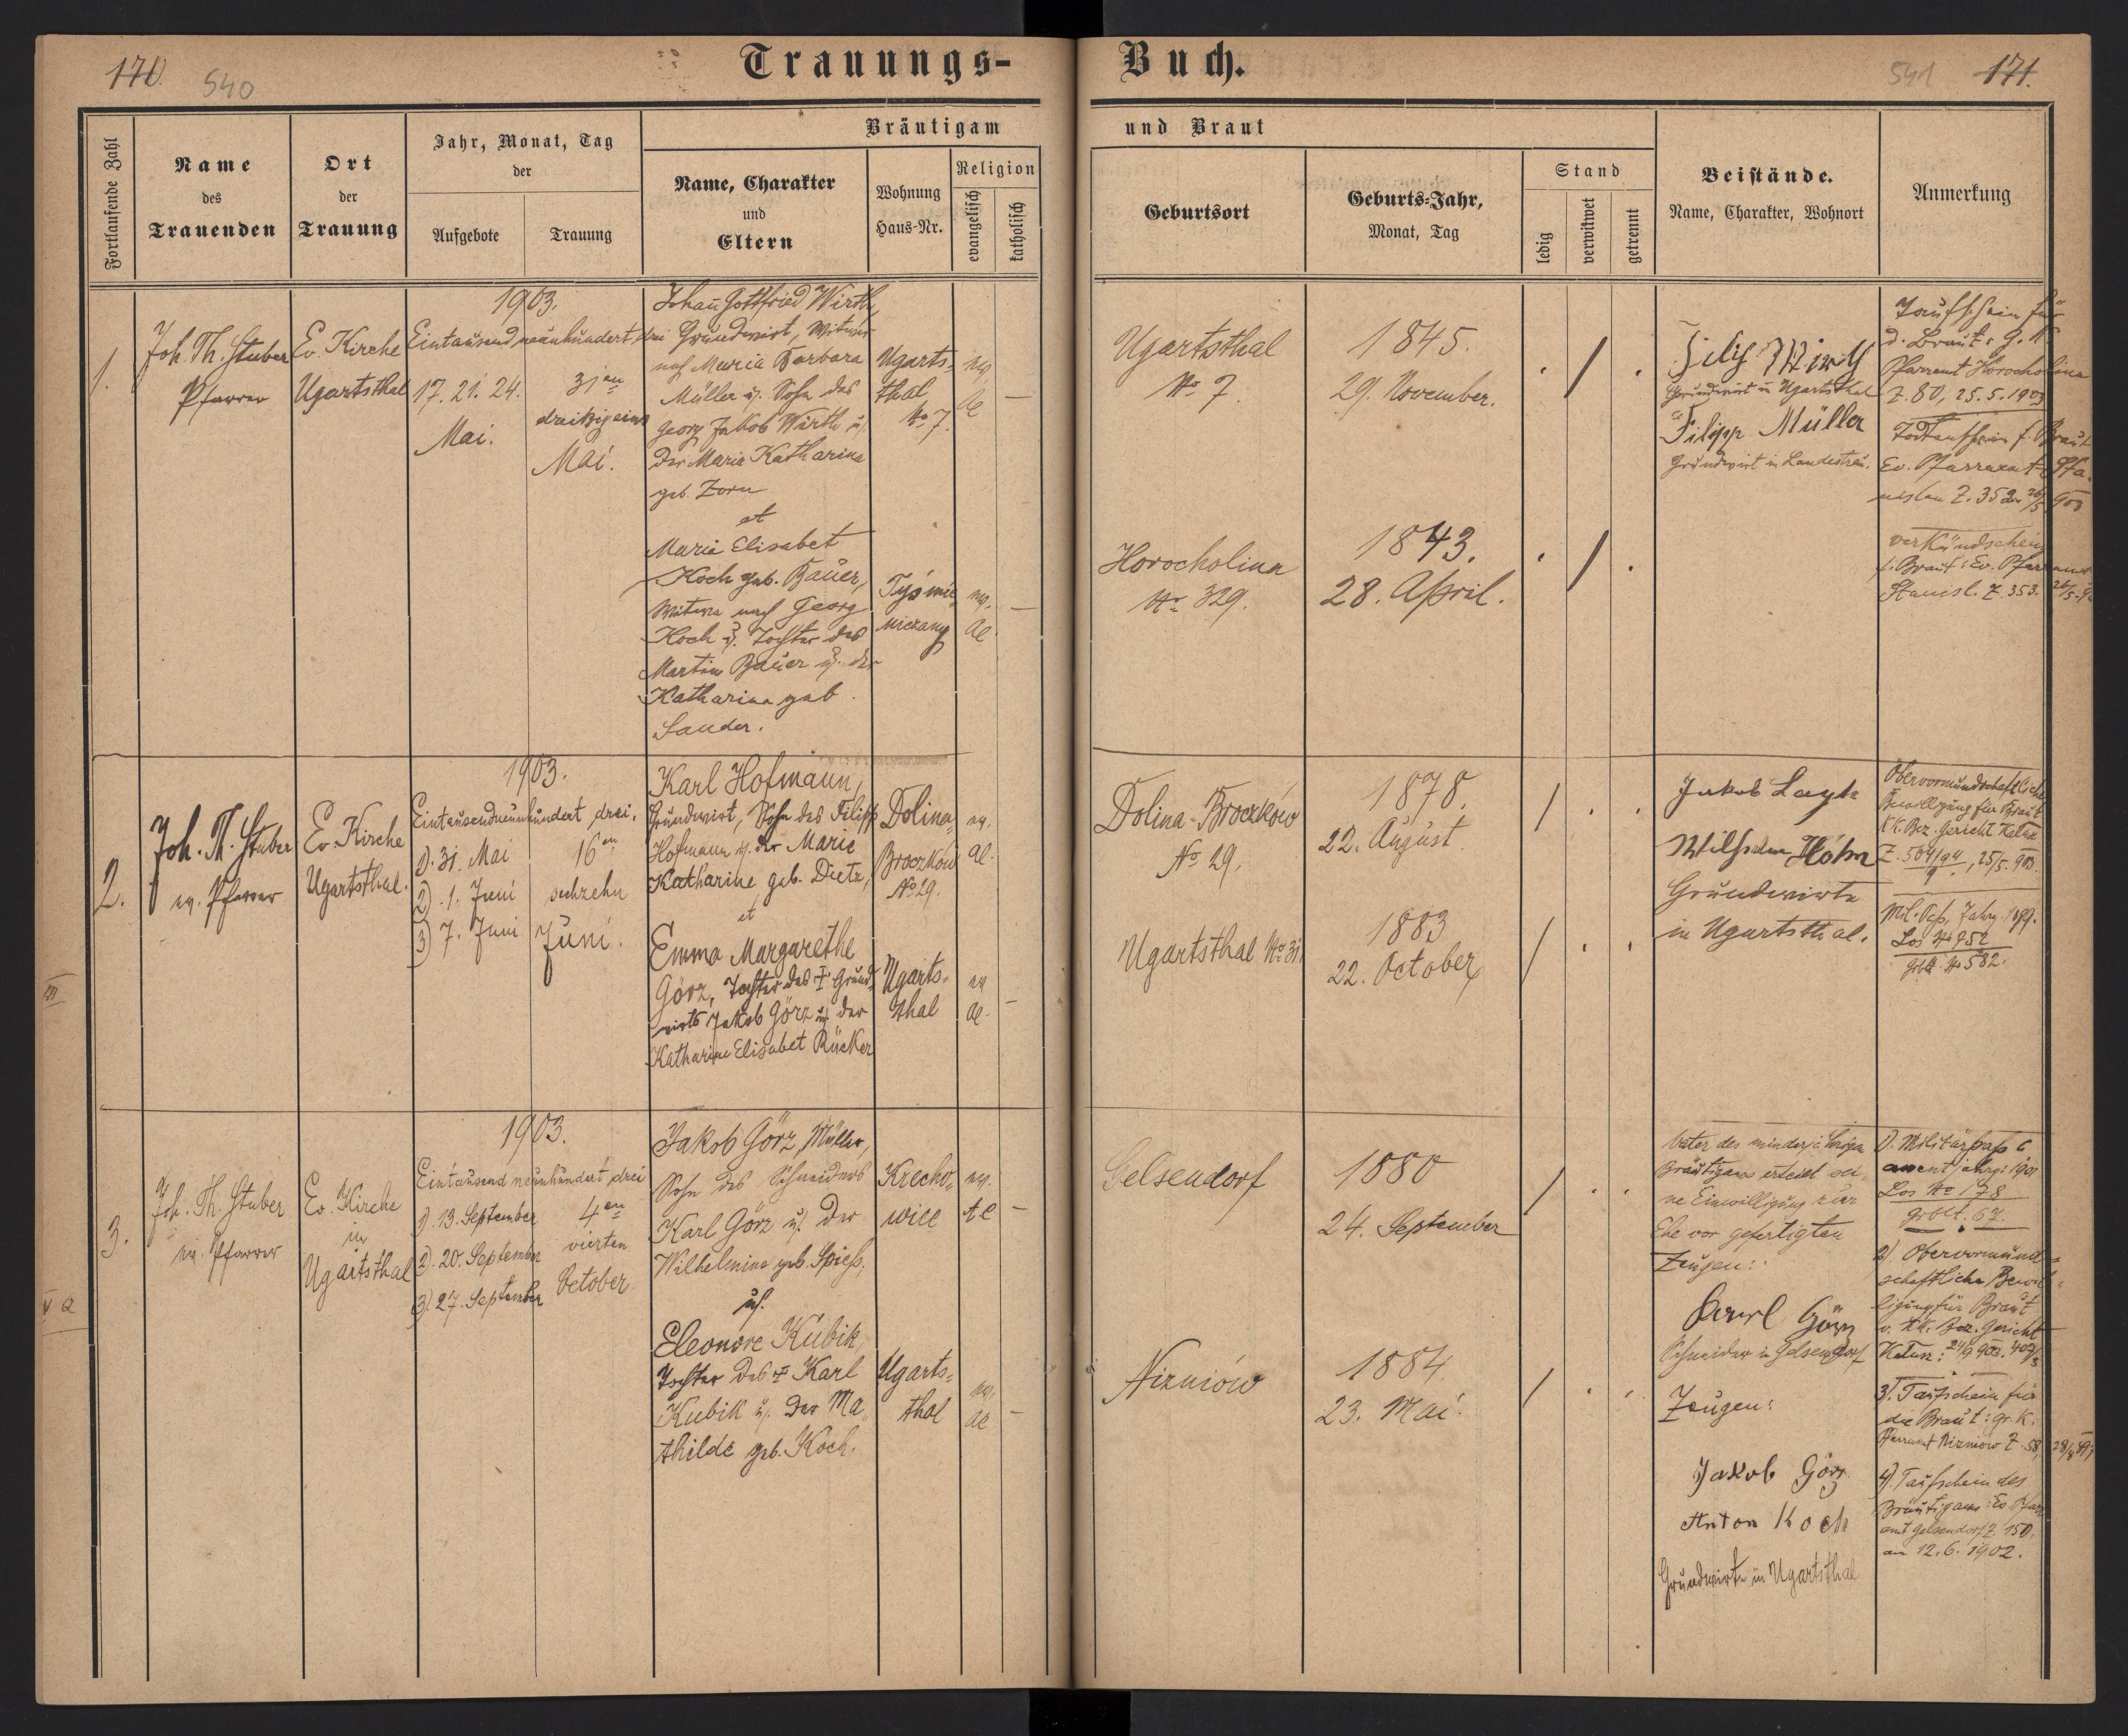 170.
540
Trauungs-
Buch.
541
171.
Fortlaufende Zahl
Name
des
Trauenden
Ort
der
Trauung
Jahr, Monat, Tag
der
Aufgebote
Trauung
Bräutigam
Name, Charakter
und
Eltern
Wohnung
Haus-Nr.
Religion
evangelisch
katholisch
und Braut
Geburtsort
Geburts-Jahr,
Monat, Tag
Stand
ledig
verwitwet
getrennt
Beistände.
Name, Charakter, Wohnort
Anmerkung
1.
Joh. Th. Stuber
Pfarrer
Ev. Kirche
Ugartsthal
1903.
Eintausend neunhundert drei
17. 21. 24.
Mai.
31en
dreißigeins
Mai.
Johañ Gottfried Wirth,
Grundwirt, Witwer
nach Maria Barbara
Müller u. Sohn des
Georg Jakob Wirth u.
der Maria Katharina
geb. Zorn
et
Maria Elisabet
Koch geb. Bauer,
Witwe nach Georg
Koch u. Tochter des
Martin Bauer u. der
Katharina geb.
Sander.
Ugarts-
thal
No 7.
ev.
ae
—
Tyśmie-
niczany
ev.
ae.
—
Ugartsthal
No 7.
1845.
29. November.
Horocholina
No 329.
1843.
28. April.
Grundwirt in Ugartsthal
Filipp Müller
Grundwirt in Landestreu.
Taufschein für
d. Braut: g. K.
Pfarramt Horocholina
Z. 80, 25.5.1903
Todtenschein f. Braut
Ev. Pfarramt Sta-
nislau Z. 352 26/5 903
Verkündschein
f. Braut: Ev. Pfarramt
Stanisl. Z. 353.
2.
Joh. Th. Stuber
ev. Pfarrer
Ev. Kirche
Ugartsthal.
1903.
Eintausendneunhundert drei.
1). 31. Mai
2). 1. Juni
3) 7. Juni
16en
sechzehn
Juni.
Karl Hofmann,
Grundwirt, Sohn des Filipp
Hofmann u. der Marie
Katharine, geb. Dietz,
et
Emma Margarethe
Görz, Tochter des † Grund-
wirts Jakob Görz u. der
Katharine Elisabet Rücker
Dolina-
Broczków
No 29.
ev.
ae.
Ugarts-
thal
ev
ae.
—
Dolina-Broczków
No 29.
1878.
22. August.
Ugartsthal No 31.
1883
22. October
Jakob
Wilhelm Höhn
Grundwirte
in Ugartsthal.
Obervormundschaftliche
Bewilligung für Braut
K.K. Bez. Gericht Kalusz
Z. 504/94, 25/5. 903.
Mil. Paß, Jahrg. 1899.
Los No 952
Grbtt. No 582.
3.
Joh. Th. Stuber
ev. Pfarrer
Ev. Kirche
in
Ugartsthal
1903.
Eintausend neunhundert drei
1) 13. September
2). 20. September
3). 27. September
4en
vierten
October
Jakob Görz, Müller,
Sohn des Schneiders
Karl Görz u. der
Wilhelmina geb. Spieß,
u.
Eleonore Kubik,
Tochter des † Karl
Kubik u. der Ma-
thilde geb. Koch.
Krecho-
wice
ev.
ae
—
Ugarts-
thal
ev.
ae
—
Gelsendorf
1880
24. September
Nizniów
1884.
23. Mai.
Vater des minderjährigen
Bräutigams erteilt sei-
ne Einwilligung zur
Ehe vor gefertigten
Zeugen:
Karl Görz
Schneider in Gelsendorf
Zeugen:
Jakob Görz
Anton Koch
Grundwirte in Ugartsthal
1). Militärpaß
Jahrg: 1901
Los No 178
Grbtt. 67.
2) Obervormund-
schaftliche Bewil-
ligung für Braut
v. KK. Bez. Gericht
Kalusz:
3). Taufschein für
die Braut: gr. K.
Pfarramt Nizniow Z. 58,
4). Taufschein des
Bräutigams: Ev. Pfarr-
amt Gelsendorf Z. 150,
an 12.6.1902.